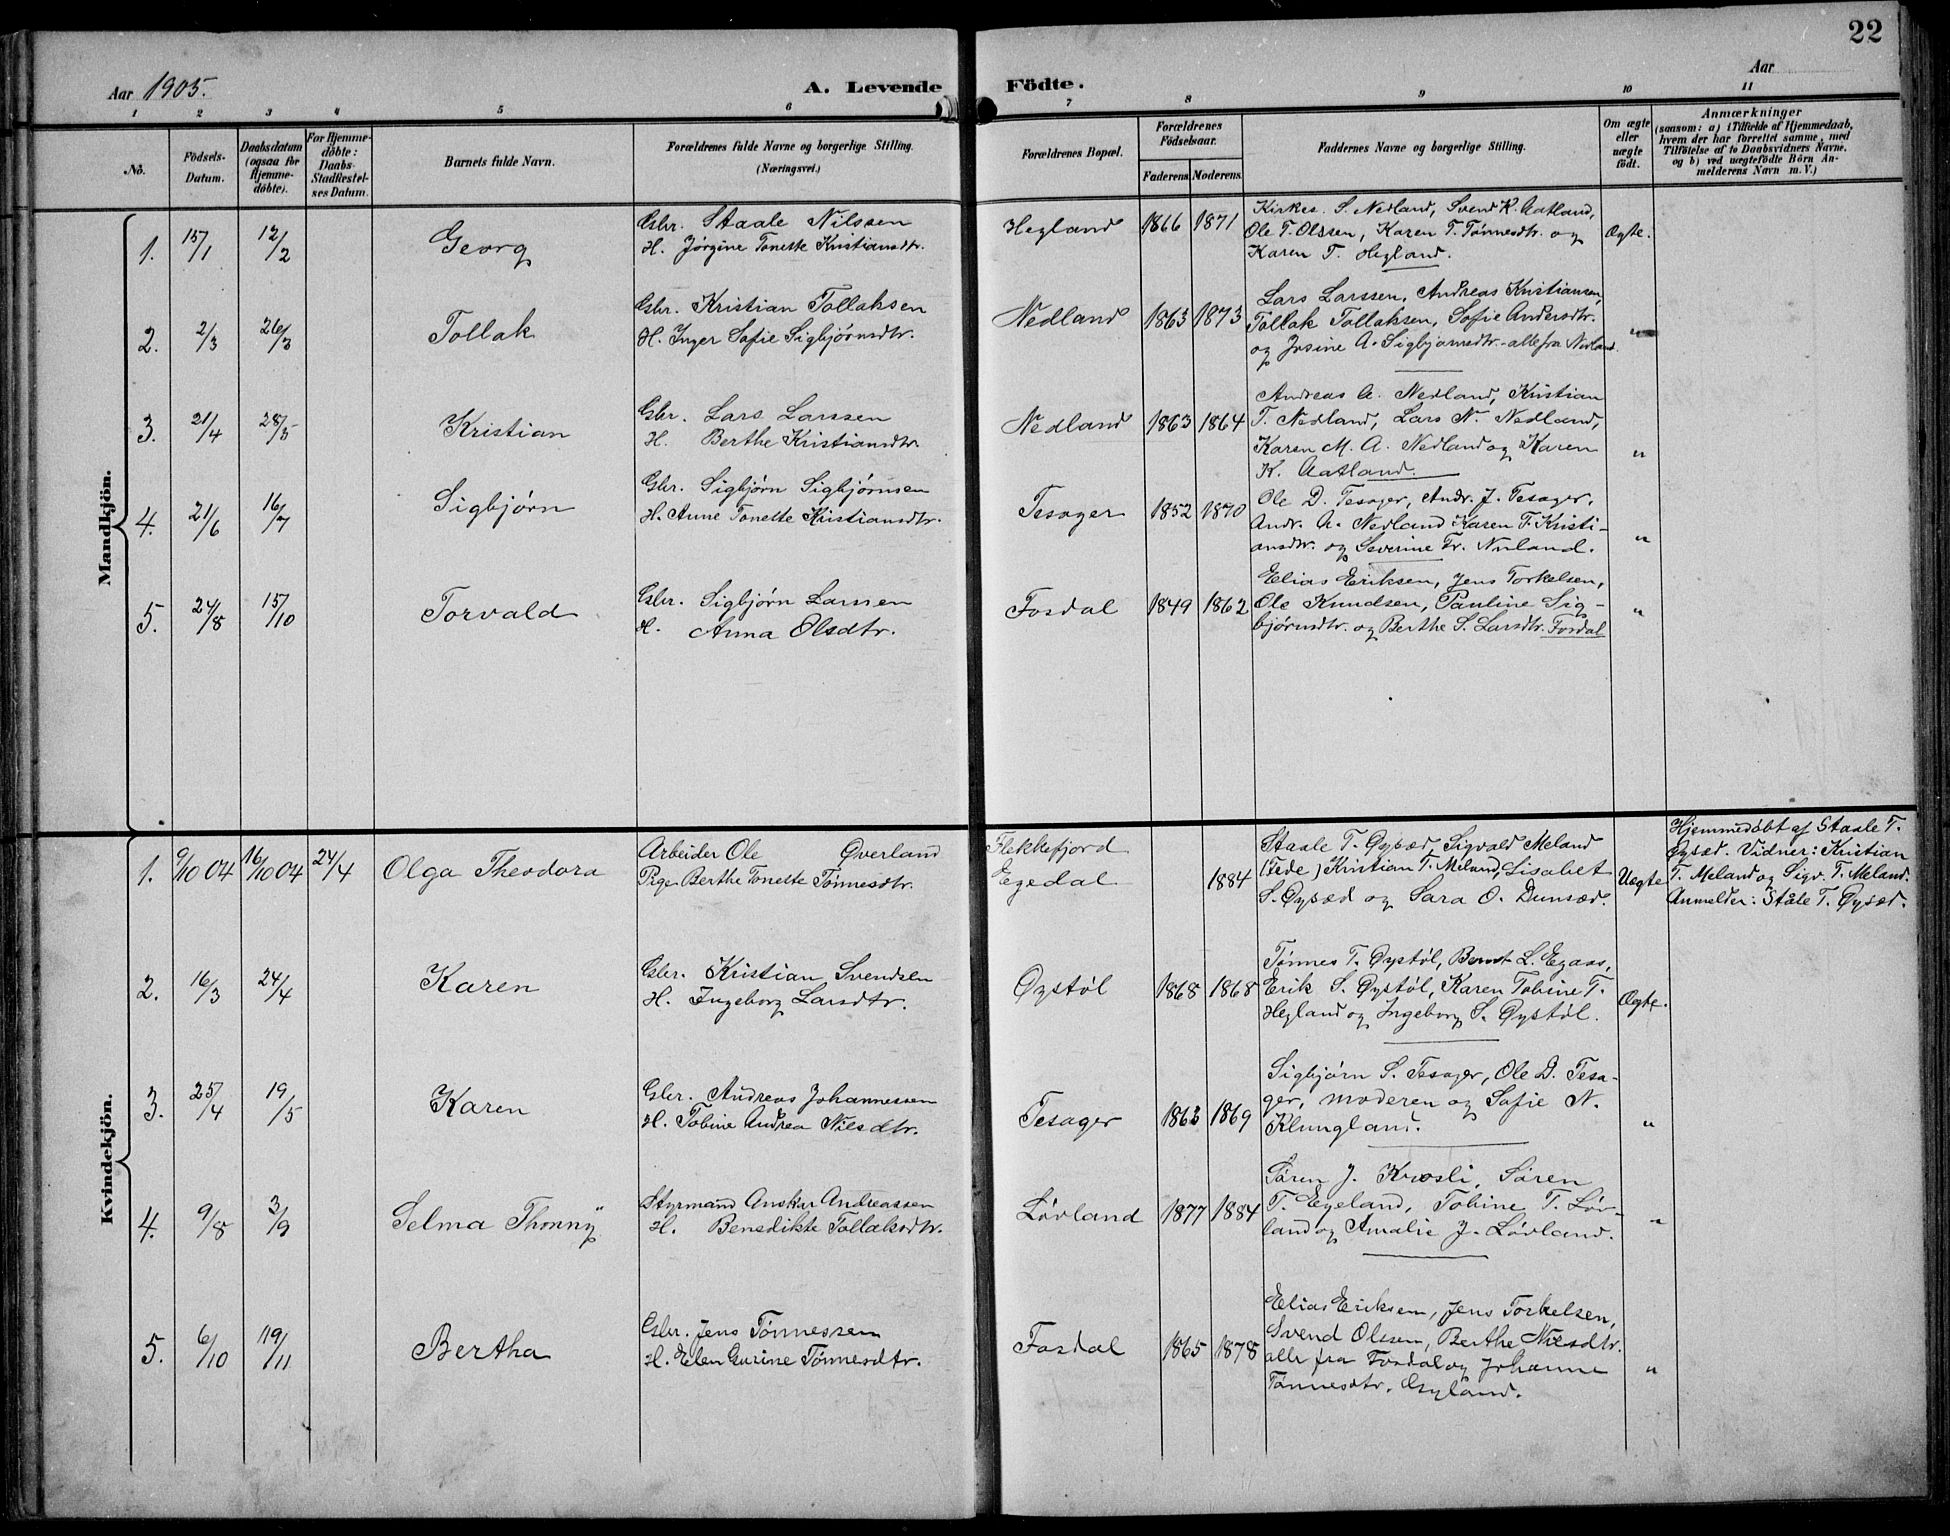 22
Aar 1905. A. Levende Födte. Aar
1 2 3 4 5 6 7 8 9 10 11
No. Födsels-Datum. Daabsdatum (ogsaa for Hjemmedöbte). For Hjemmedöbte: Daabs-Stadfestelses Datum. Barnets fulde Navn. Forældrenes fulde Navne og borgerlige Stilling. (Næringsvei.) Forældrenes Bopæl. Forældrenes Födselsaar. Faderens Moderens. Faddernes Navne og borgerlige Stilling. Om ægte eller uægte födt. Anmærkninger (saasom: a) i Tilfælde af Hjemmedaab, hvem der har forrettet samme, med Tilföielse af to Daabsvidners Navne, og b) ved uægtefödte Börn Anmelderens Navn m. V.)
Mandkjön.
1. 15/1 12/2 Georg
Gbr. Staale Nilssen
H. Jørgine Tonette Kristiansdtr.
Hegland 1866 1871
Kirkes. S. Nedland, Svend K. Aatland,
Ole T. Olssen, Karen T. Tønnesdtr. og
Karen T. Hegland.
Ægte.
2. 2/3 26/3 Tollak
Gbr. Kristian Tollaksen
H. Inger Sofie Sigbjørnsdtr.
Nedland 1863 1873
Lars Larssen, Andreas Kristiansen,
Tollak Tollaksen, Sofie Andersdtr.
og Josine A. Sigbjørnsdtr. - alle fra Nedland.
"
3. 21/4 28/5 Kristian
Gbr. Lars Larssen
H. Berthe Kristiansdtr.
Nedland 1863 1864
Andreas A. Nedland, Kristian
T. Nedland, Lars N. Nedland,
Karen M. A. Nedland og Karen
K. Aatland.
"
4. 21/6 16/7 Sigbjørn
Gbr. Sigbjørn Sigbjørnsen
H. Anne Tonette Kristiansdtr.
Tesager 1852 1870
Ole D. Tesager, Andr. J. Tesager,
Andr. A. Nedland Karen T. Kristi-
ansdtr. og Severine Tr. Nuland.
"
5. 24/8 15/10 Torvald
Gbr. Sigbjørn Larsen
H. Anna Olsdtr.
Fosdal 1849 1862
Elias Eriksen, Jens Torkelsen,
Ole Knudsen, Pauline Sig-
bjørnsdtr. og Berthe S. Larsdtr. Fosdal
"
Kvindekjön.
1. 9/10 04 16/10 04 24/4 Olga Theodora
Arbeider Ole Øverland
Pige Berthe Tonette Tønnesdtr.
Flekkefjord
Egedal 1884
Staale T. Øysæd, Sigvald Meland
(Fede) Kristian T. Meland, Lisabet
S. Øysæd og Sara O. Dunsæd.
Uægte
Hjemmedøbt af Staale T.
Øysæd. Vidner: Kristian
T. Meland og Sigv. T. Meland.
Anmelder: Ståle T. Øysæd.
2. 16/3 24/4 Karen
Gbr. Kristian Svendsen
H. Ingeborg Larsdtr.
Øystøl 1868 1868
Tønnes T. Øystøl, Bernt L. Egaas,
Erik S. Øystøl, Karen Tobine T.
Hegland og Ingeborg S. Øystøl.
Ægte.
3. 25/4 19/5 Karen
Gbr. Andreas Johannessen
H. Tobine Andrea Nilsdtr.
Tesager 1863 1869
Sigbjørn S. Tesager, Ole D. Tesa-
ger, moderen og Sofie N.
Klungland.
"
4. 9/8 3/9 Selma Thonny
Styrmand Anskar Andreassen
H. Benedikte Tollaksdtr.
Løvland 1877 1884
Søren J. Krosli, Søren
T. Egeland, Tobine T. Løv-
land og Amalie J. Løvland.
"
5. 6/10 19/11 Bertha
Gbr. Jens Tønnessen
H. Elen Gurine Tønnesdtr.
Fosdal 1865 1878
Elias Eriksen, Jens Torkelsen,
Svend Olssen, Berthe Nilsdtr.
alle fra Fosdal og Johanne
Tønnesdtr. Gyland.
"